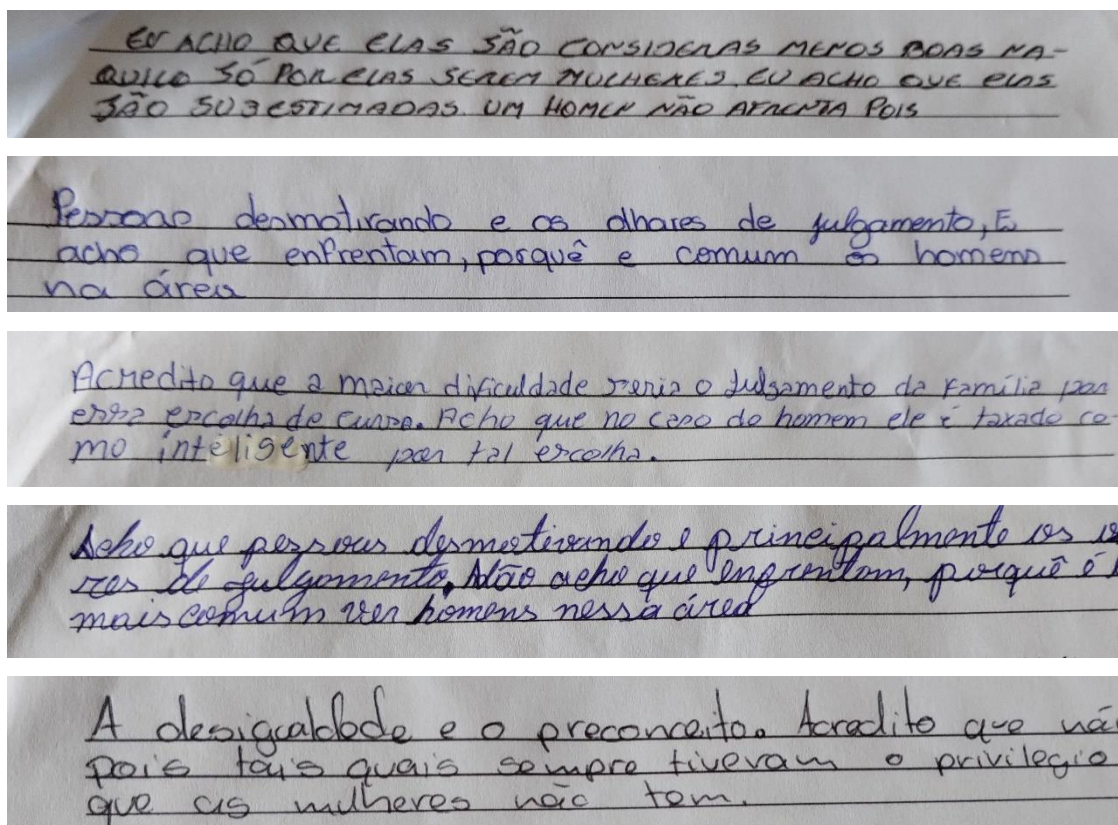 EU ACHO QUE ELAS SÃO CONSIDERAS MENOS BOAS NA-
QUILO SÓ POR ELAS SEREM MULHERES. EU ACHO QUE ELAS
SÃO SUBESTIMADAS. UM HOMEM NÃO AFRENTA POIS
Pessoas desmotivando e os olhares de julgamento, E
acho que enfrentam, porquê e comum homens
na área
Acredito que a maior dificuldade seria o julgamento da família por
essa escolha de curso. Acho que no caso do homem ele é taxado co
mo inteligente por tal escolha.
Acho que pessoas desmotivando e principalmente os
res de julgamento. Não acho que enfrentam, porquê é
mais comum ver homens nessa área
A desigualdade e o preconceito. Acredito que nã
pois tais quais sempre tiveram o privilegio
que as mulheres não tem.